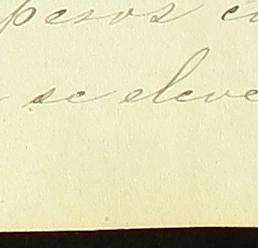 pesos
se eleve